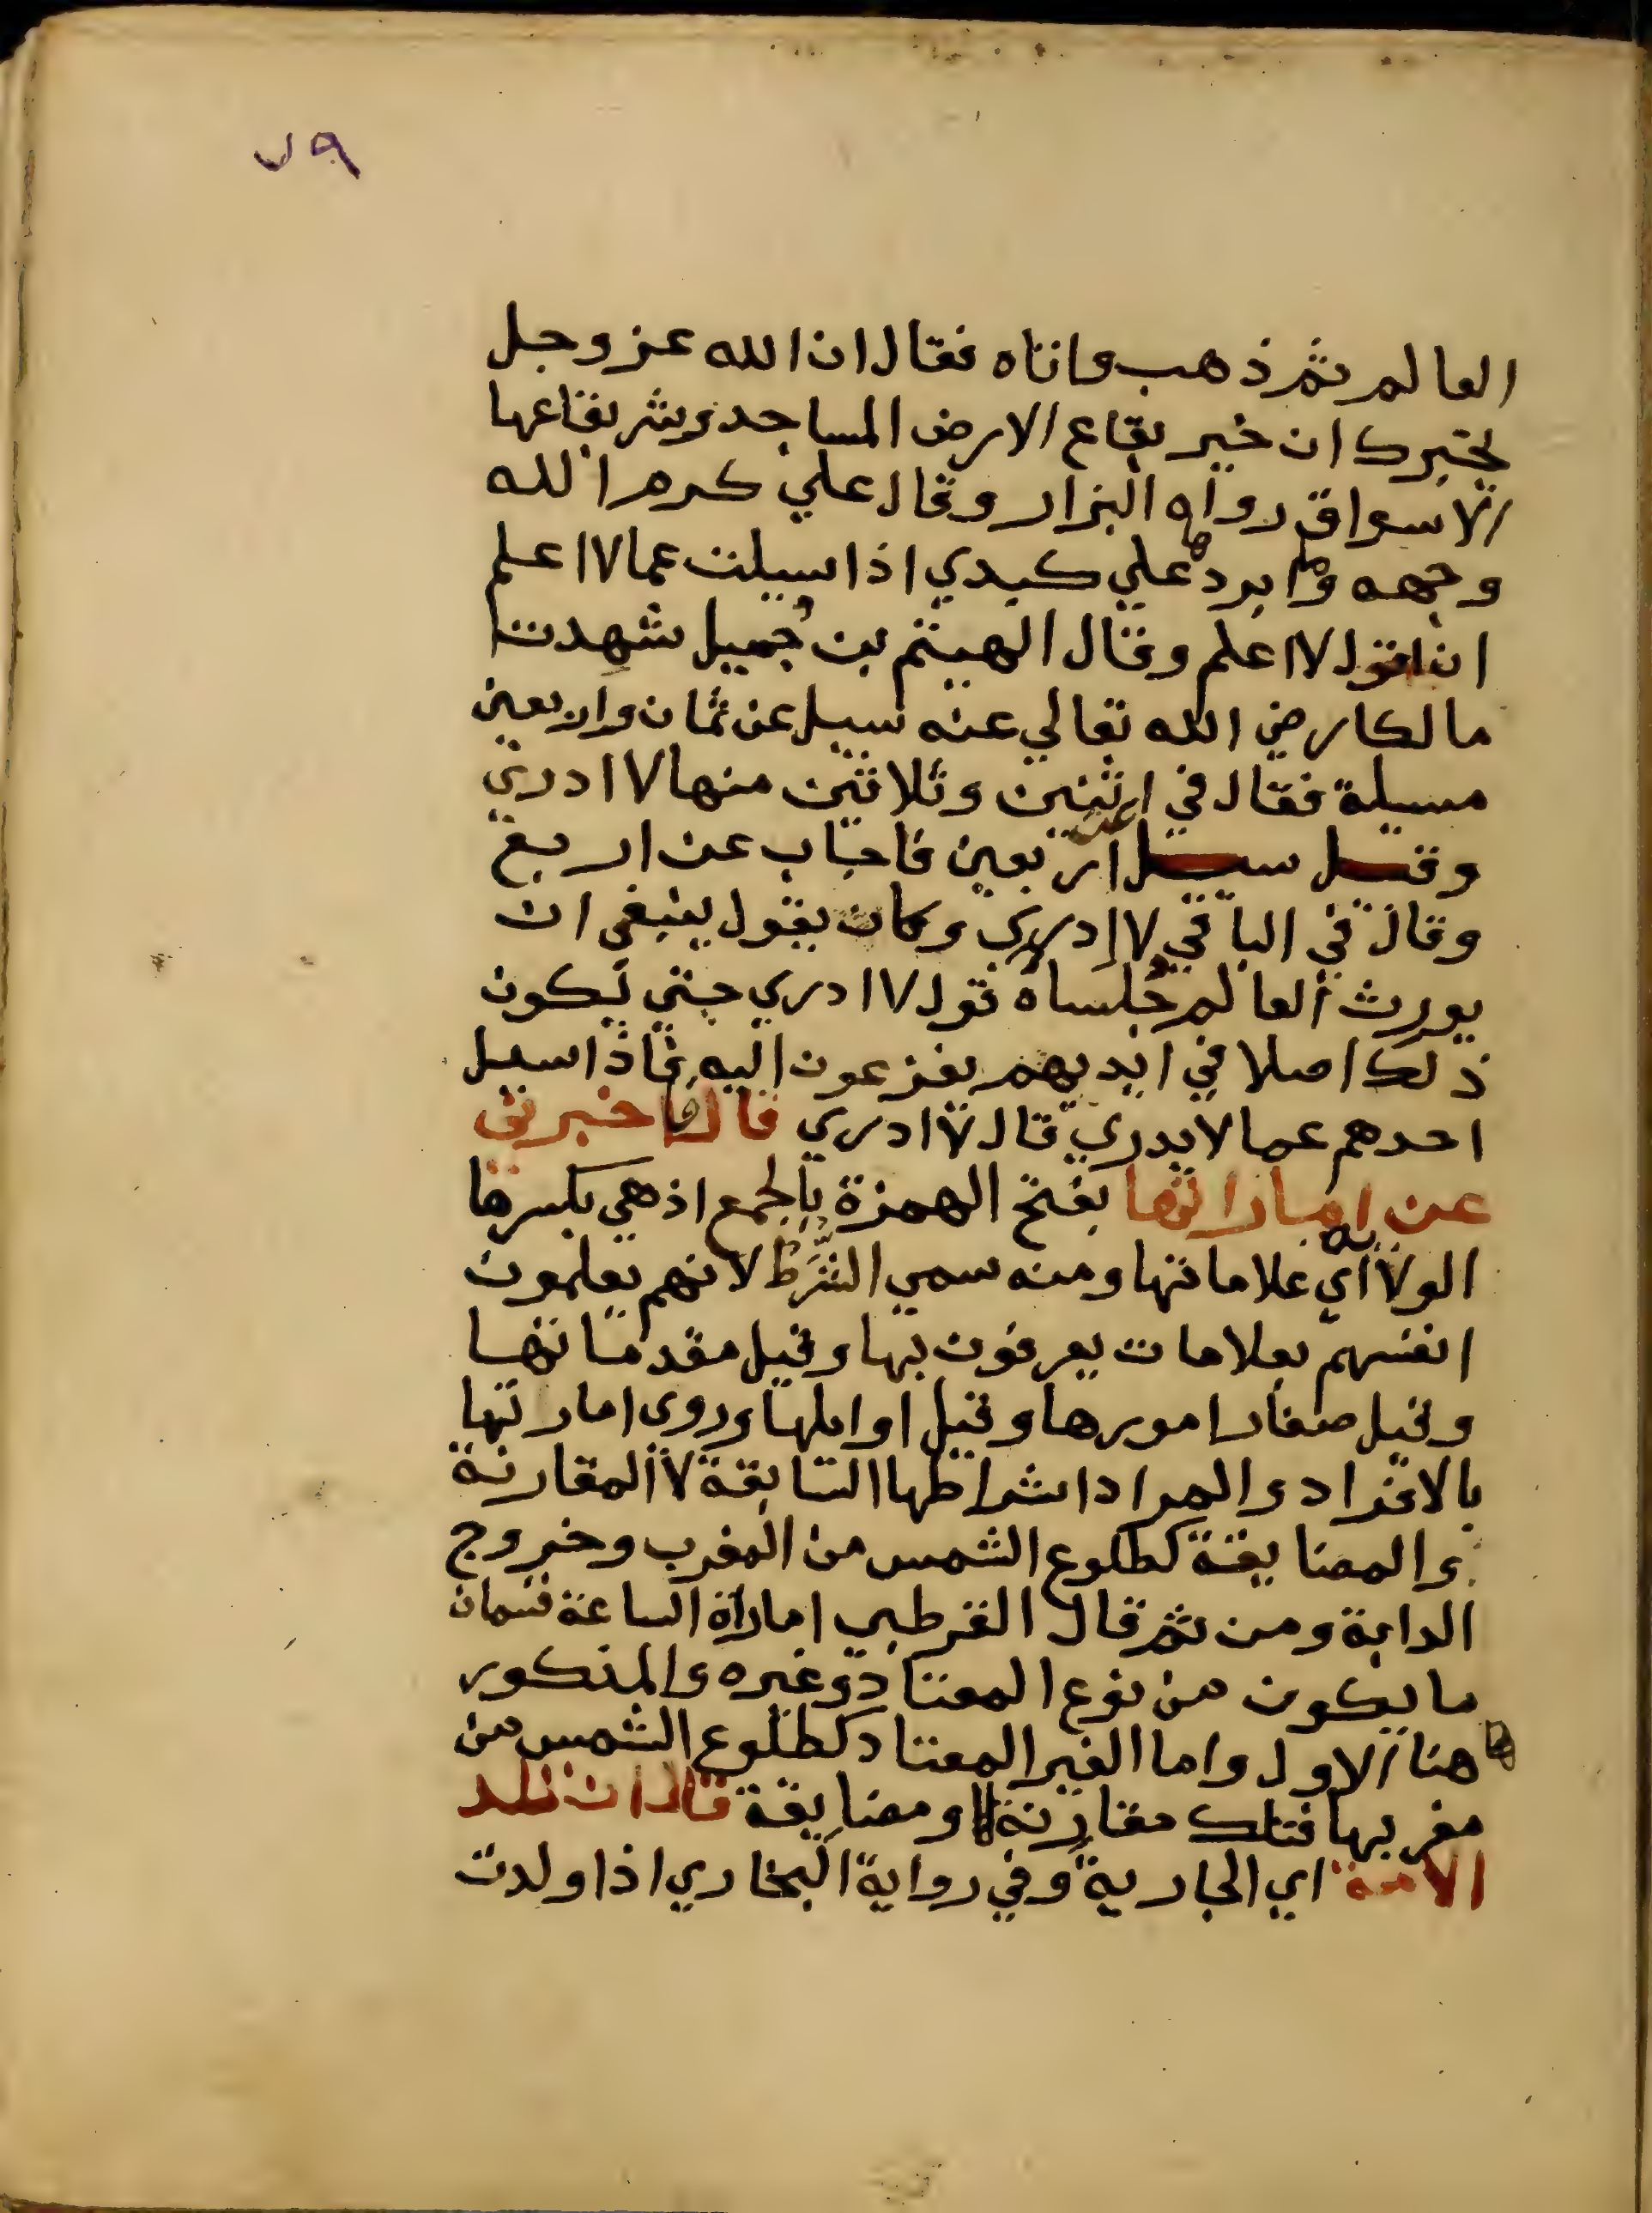 ٧٩
العالم ثم ذهب واتاه فقال ان الله عز وجل
يخبرك ان خير بقاع الارض المساجد وشر بقاعها
الاسواق رواه البزار وقال علي كرم الله
وجهه وما ابردها علي كبدي اذا سيلت عما لا اعلم
ان اقول لا اعلم وقال الهيثم بن جميل شهدت
مالكا رضي الله تعالي عنه سيل عن ثمان واربعين
مسيلة فقال في اثنين وثلاثين منها لا ادري
وقيل سيل عن اربعين فاجاب عن اربع
وقال في الباقي لا ادري وكان يقول ينبغي ان
يورث العالم جلساه قول لا ادري حتي يكون
ذلك اصلا في ايديهم يفزعون اليه فاذا سيل
احدهم عما لا يدري قال لا ادري قال فاخبرني
عن اماراتها بفتح الهمزة بالجمع اذ هي بكسرها
الولاية اي علاماتها ومنه سمي الشرط لانهم يعلمون
انفسهم بعلامات يعرفون بها وقيل مقدماتها
وقيل صغار امورها وقيل اوايلها وروي امارتها
بالافراد والمراد اشراطها السابقة لا المقارنة
والمضايقة كطلوع الشمس من المغرب وخروج
الدابة ومن ثم قال القرطبي اماراة الساعة قسمان
ما يكون من نوع المعتاد وغيره والمذكور
هاهنا الاول واما الغير المعتاد كطلوع الشمس من
مغربها فتلك مقارنة او مضايقة قال ان تلد
الامة اي الجارية وفي رواية البخاري اذا ولدت